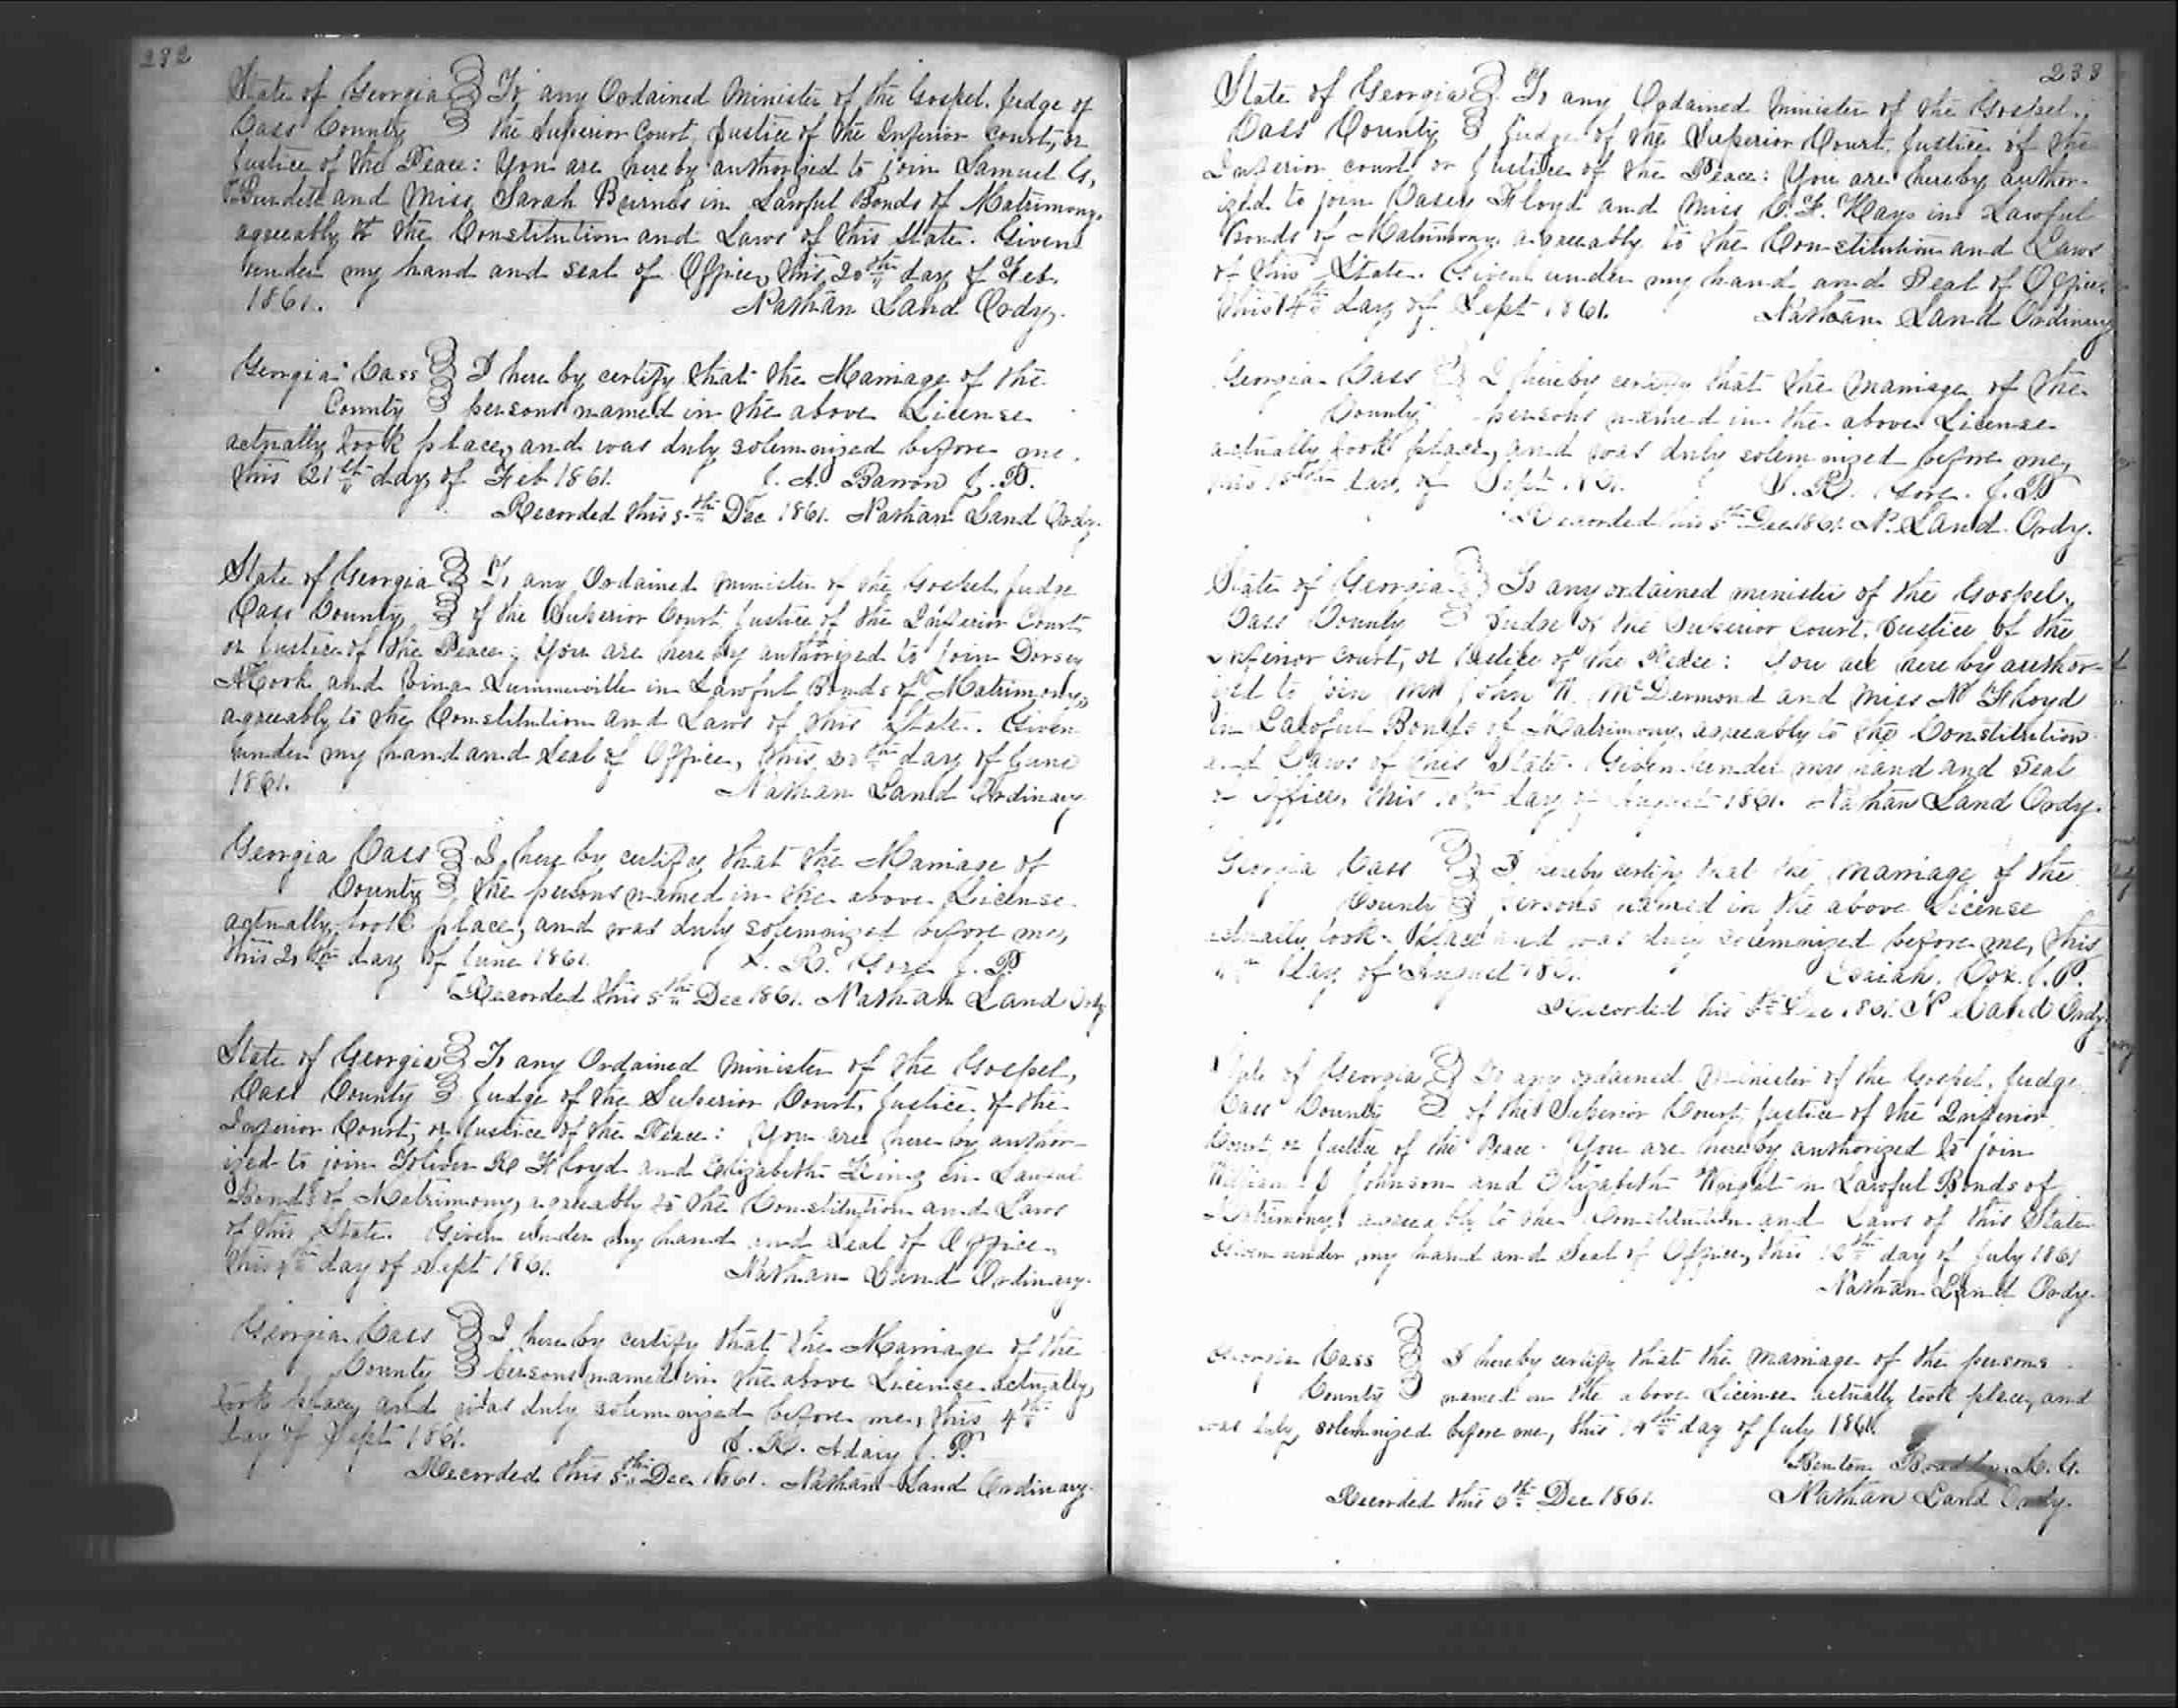 232
State of Georgia To any Ordained Minister of the Gospel, Judge of
Cass County the Superior Court, Justice of the Inferior Court, or
Justice of the Peace: You are hereby authorized to join Samuel G.
and Miss Sarah Burnes in Lawful Bonds of Matrimony,
agreeably to the Constitution and Laws of this State. Given
under my hand and seal of Office, this 20th day of Feb.
1861. Nathan Land Ordy.
Georgia Cass I here by certify that the Marriage of the
County persons named in the above License
actually took place, and was duly solemnized before me.
this 21st day of Feb 1861. J. A. Barron J. P.
Recorded this 5th Dec 1861. Nathan Land Ordy.
State of Georgia To any Ordained minister of the Gospel, Judge
Cass County of the Superior Court, Justice of the Inferior Court
or Justice of the Peace: You are here by authorized to join Dorsey
and Summerville in Lawful Bonds of Matrimony,
agreeably to the Constitution and Laws of this State. Given
under my hand and seal of Office, this 20th day of June
1861. Nathan Land Ordinary.
Georgia Cass I here by certify that the Marriage of
County the persons named in the above License
actually took place, and was duly solemnized before me,
this day of June 1861. Gore J. P.
Recorded this 5th Dec 1861. Nathan Land Ordy
State of Georgia To any Ordained Minister of the Gospel,
Cass County Judge of the Superior Court, Justice of the
Inferior Court, or Justice of the Peace: You are here by author-
ized to join Floyd and Elizabeth King in Lawful
Bonds of Matrimony, agreeably to the Constitution and Laws
of this State. Given under my hand and seal of Office,
this day of Sept 1861. Nathan Land Ordinary.
Georgia Cass I here by certify that the Marriage of the
County persons named in the above License actually
took place, and was duly solemnized before me, this 4th
day of Sept 1861. Adair J. P.
Recorded this 5th Dec 1861. Nathan Land Ordinary.
233
State of Georgia To any Ordained Minister of the Gospel,
Cass County Judge of the Superior Court, Justice of the
Inferior court or Justice of the Peace: You are hereby author-
ized to join Casey Floyd and Miss Hays in Lawful
Bonds of Matrimony, agreeably to the Constitution and Laws
of this State. Given under my hand and Seal of Office,
this 14th day of Sept 1861. Nathan Land Ordinary
Georgia Cass I hereby certify that the marriage of the
County persons named in the above License
actually took place, and was duly solemnized before me,
this day of Sept Gore. J. P
Recorded this 5th Dec 1861. N. Land Ordy.
State of Georgia To any ordained minister of the Gospel,
Cass County Judge of the Superior Court, Justice of the
Inferior Court, or Justice of the Peace: You are here by author-
ized to join Mr John McDermond and Miss Floyd
in Lawful Bonds of Matrimony, agreeably to the Constitution
and Laws of this State. Given under my hand and Seal
of Office, this day of August 1861. Nathan Land Ordy.
Georgia Cass I hereby certify that the marriage of the
County persons named in the above License
actually took place and was duly solemnized before me, this
day of August 1861. Esaiah Cox J. P.
Recorded this 5th Dec 1861. N Land Ordy.
State of Georgia To any ordained Minister of the Gospel, Judge
Cass County of the Superior Court, Justice of the Inferior
Court or Justice of the Peace. You are hereby authorized to join
William Johnson and Elizabeth Wright in Lawful Bonds of
Matrimony, agreeably to the Constitution and Laws of this State
Given under my hand and Seal of Office, this day of July 1861
Nathan Land Ordy.
Georgia Cass I hereby certify that the marriage of the persons
County named in the above License actually took place, and
was duly solemnized before me, this 14th day of July 1861.
Benton
Recorded this 6th Dec 1861. Nathan Land Ordy.